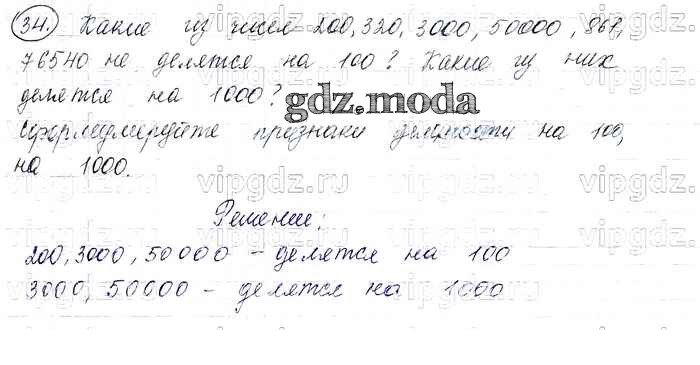 34. Какие из чисел 200, 320, 3000, 50000, 867,
76540 не делятся на 100? Какие из них
делятся на 1000?
gdz.moda
Сформулируйте признаки делимости на 100,
на 1000.
vipgdz.ru
Решение:
200, 3000, 50000 – делятся на 100
3000, 50000 – делятся на 1000